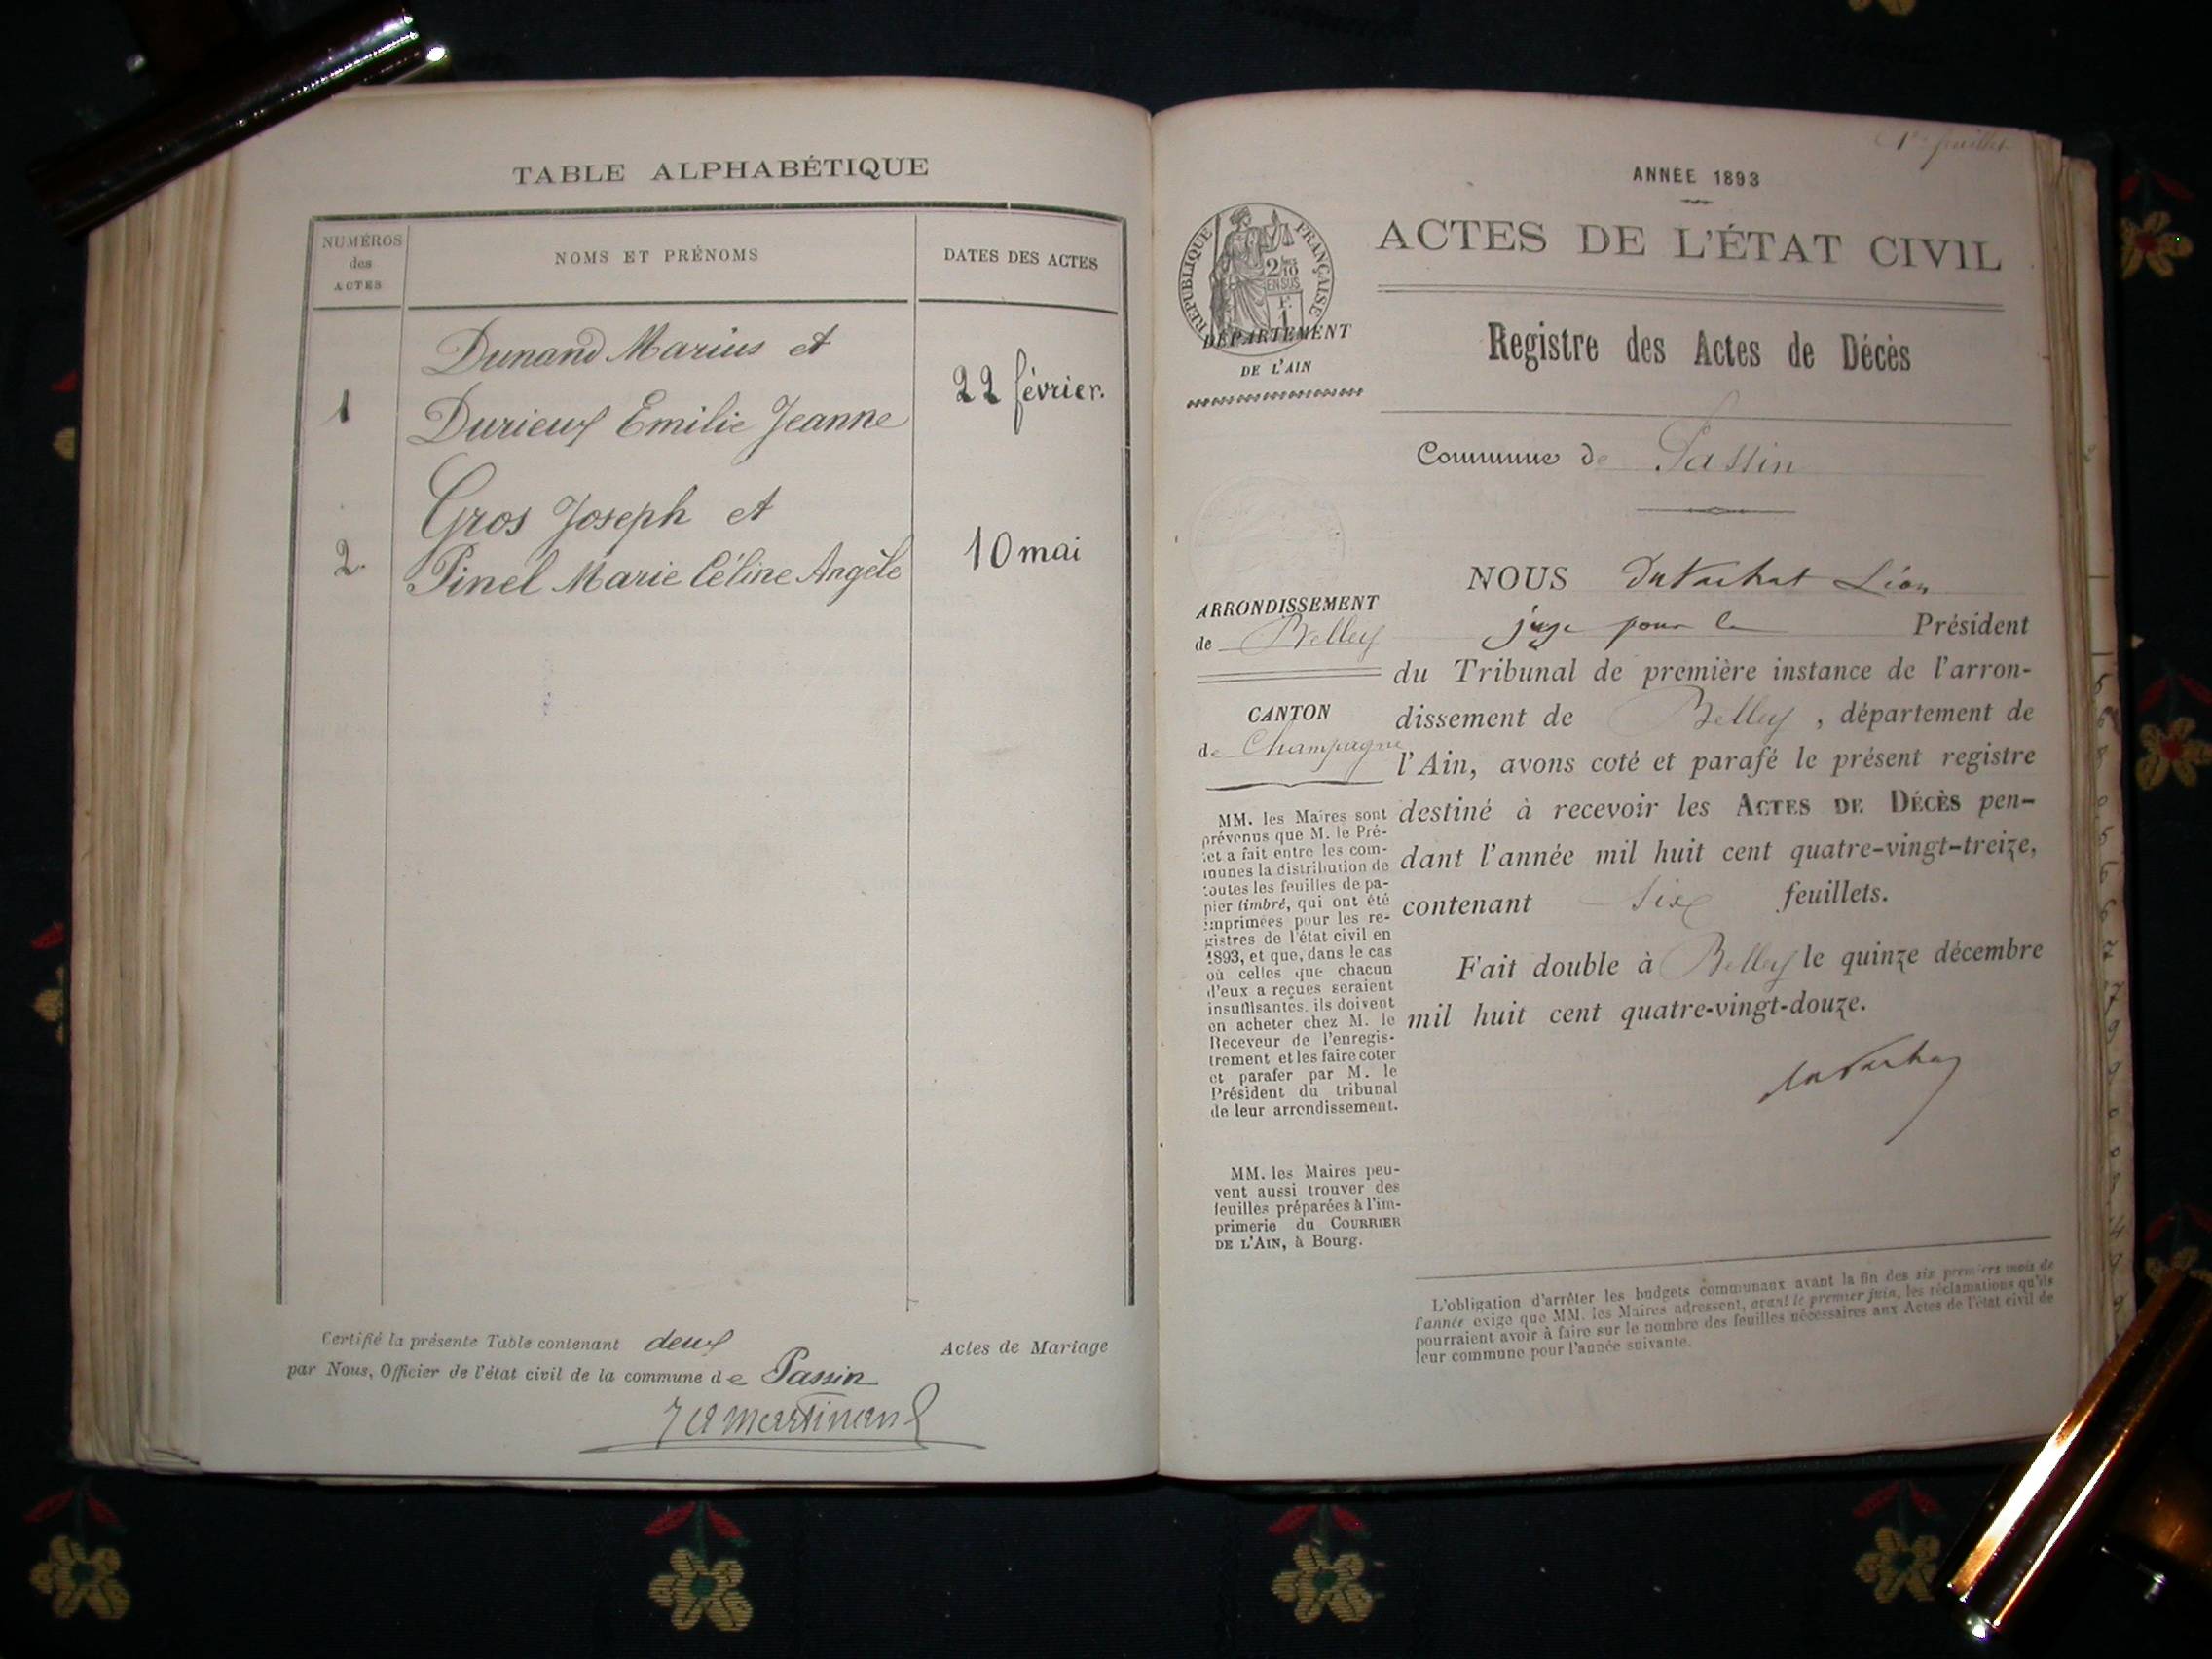 TABLE ALPHABÉTIQUE
NUMÉROS
des
ACTES
NOMS ET PRÉNOMS
DATES DES ACTES
1
Dunand Marius et
Durieux Emilie Jeanne
22 février.
2.
Gros Joseph et
Pinel Marie Céline Angèle
10 mai
Certifié la présente Table contenant deux Actes de Mariage
par Nous, Officier de l'état civil de la commune de Passin
1er feuillet
ANNÉE 1893
ACTES DE L'ÉTAT CIVIL
RÉPUBLIQUE FRANÇAISE
DÉPARTEMENT
DE L'AIN
Registre des Actes de Décès
Commune de Passin
ARRONDISSEMENT
de Belley
CANTON
de Champagne
MM. les Maires sont
prévenus que M. le Pré-
fet a fait entre les com-
munes la distribution de
toutes les feuilles de pa-
pier timbré, qui ont été
imprimées pour les re-
gistres de l'état civil en
1893, et que, dans le cas
où celles que chacun
d'eux a reçues seraient
insuffisantes, ils doivent
en acheter chez M. le
Receveur de l'enregis-
trement et les faire coter
et parafer par M. le
Président du tribunal
de leur arrondissement.
MM. les Maires peu-
vent aussi trouver des
feuilles préparées à l'im-
primerie du COURRIER
DE L'AIN, à Bourg.
NOUS Léon
juge pour le Président
du Tribunal de première instance de l'arron-
dissement de Belley, département de
l'Ain, avons coté et parafé le présent registre
destiné à recevoir les ACTES DE DÉCÈS pen-
dant l'année mil huit cent quatre-vingt-treize,
contenant six feuillets.
Fait double à Belley le quinze décembre
mil huit cent quatre-vingt-douze.
L'obligation d'arrêter les budgets communaux avant la fin des six premiers mois de
l'année exige que MM. les Maires adressent, avant le premier juin, les réclamations qu'ils
pourraient avoir à faire sur le nombre des feuilles nécessaires aux Actes de l'état civil de
leur commune pour l'année suivante.